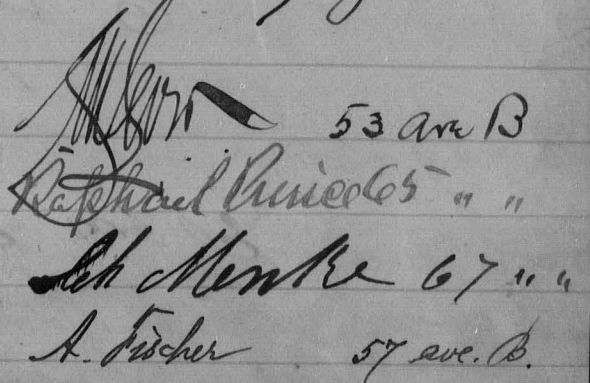 53 ave B
Raphael 65 " "
Menke 67 " "
A. Fischer 57 ave. B.